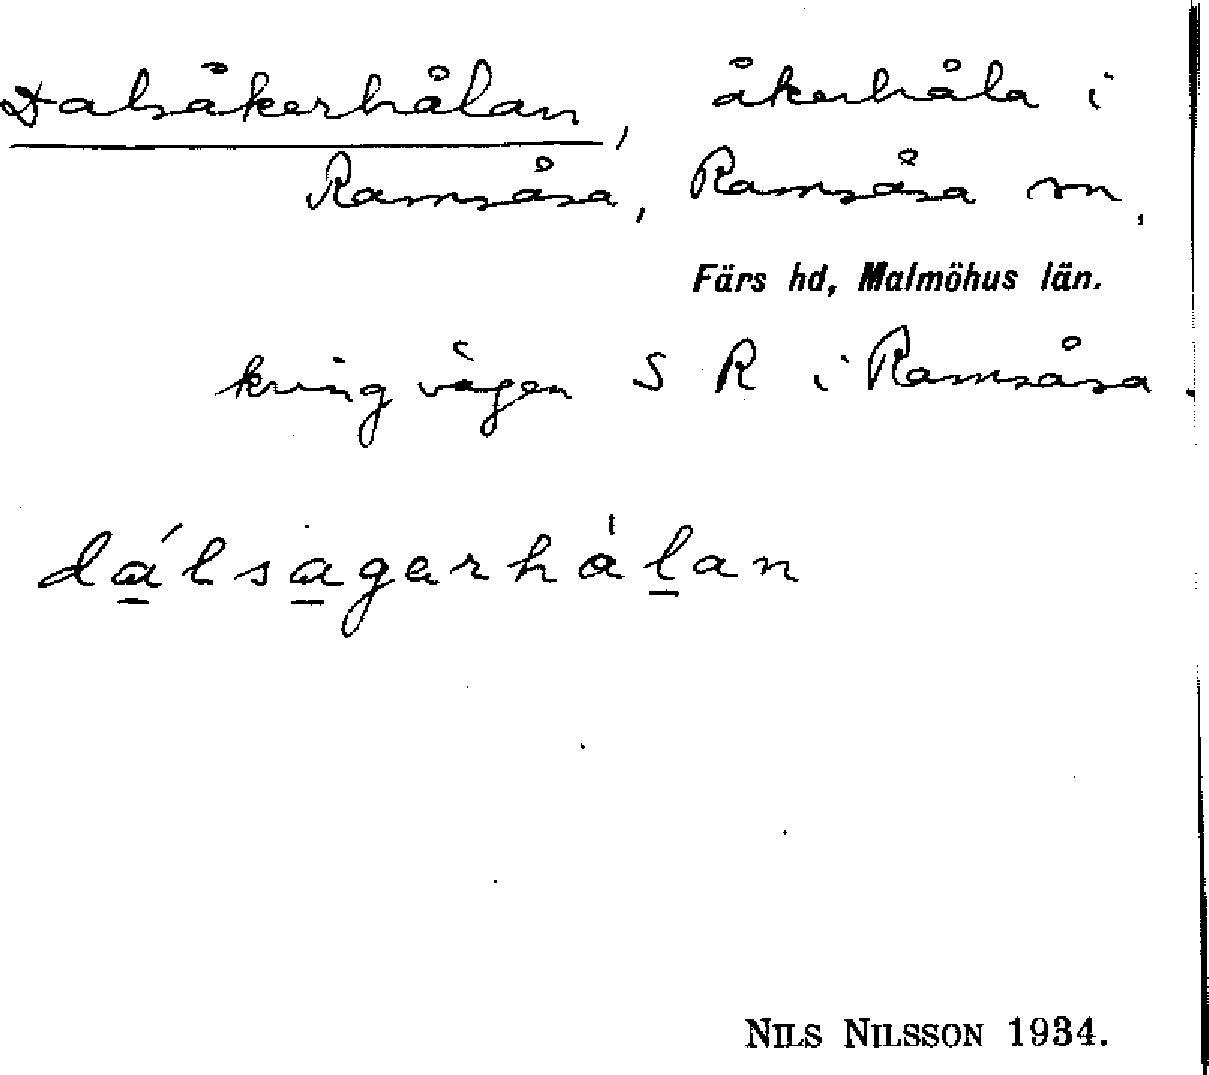 Dalsåkerhålan, åkerhåla i
Ramsåsa, Ramsåsa sn,
Färs hd, Malmöhus län.
kring vägen S R i Ramsåsa.
dálsagarhálan
NILS NILSSON 1934.